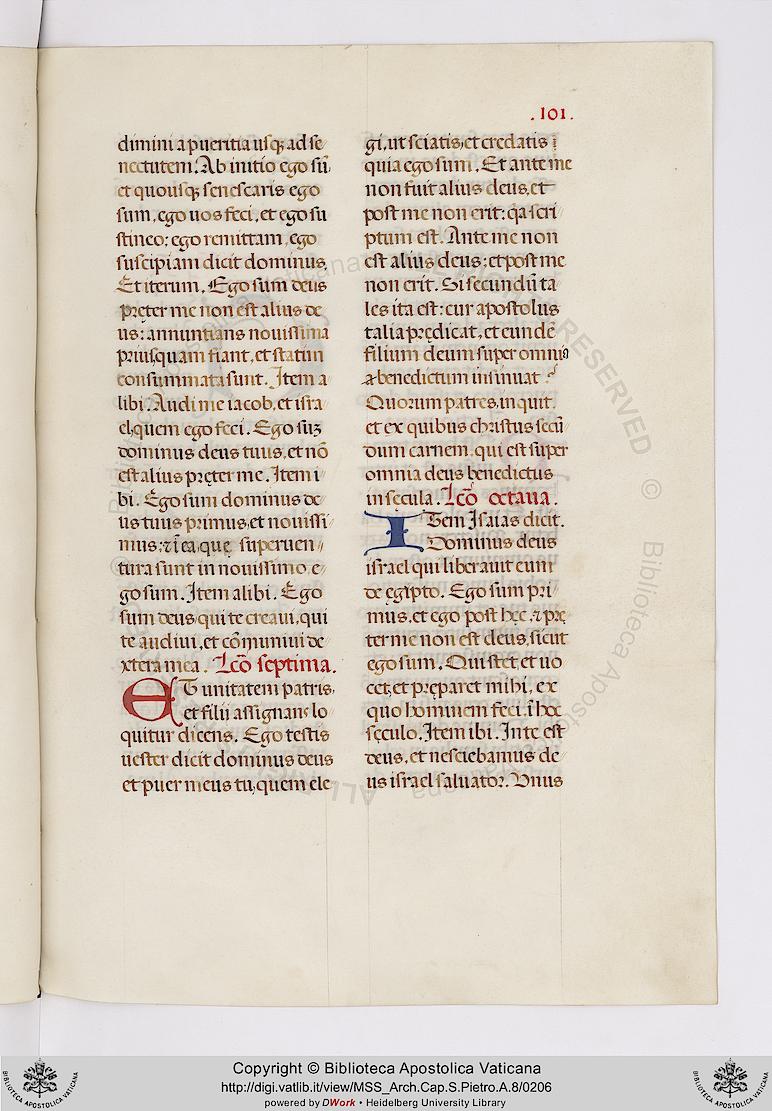 .101.
dimini a pueritia usq; ad se
nectutem. Ab initio ego sū
et quousq; senescaris ego
sum, ego uos feci, et ego su
stineo: ego remittam, ego
suscipiam dicit dominus,
Et iterum. Ego sum deus
pręter me non est alius de
us: annuntians nouissima
priusquam fiant, et statim
consummata sunt. Item a
libi. Audi me iacob, et isra
el, quem ego feci. Ego suʒ
dominus deus tuus, et nō
est alius pręter me. Item i
bi. Ego sum dominus de
us tuus primus, et nouissi
mus: ⁊ ī ea quę superuen
tura sunt in nouissimo, e
go sum. Item alibi. Ego
sum deus qui te creaui, qui
te audiui, et cōmuniui de
xtera mea. Lcō septima.
ET unitatem patris,
et filii assignans lo
quitur dicens. Ego testis
uester dicit dominus deus
et puer meus tu, quem ele
gi, ut sciatis, et credatis ī
quia ego sum. Et ante me
non fuit alius deus, et
post me non erit: qa scri
ptum est. Ante me non
est alius deus: et post me
non erit. Si secundū ta
les ita est: cur apostolus
talia prędicat, et eundē
filium deum super omnia
⁊ benedictum insinuat?
Quorum patres, inquit,
et ex quibus christus secū
dum carnem, qui est super
omnia deus benedictus
in secula. Lcō octaua.
ITem Isaias dicit.
Dominus deus
israel qui liberauit eum
de ęgipto. Ego sum pri
mus, et ego post hęc, ⁊ prę
ter me non est deus, sicut
ego sum. Qui stet, et uo
cet, et pręparet mihi, ex
quo hominem feci, ī hoc
sęculo. Item ibi. In te est
deus, et nesciebamus de
us israel saluator. Vnus
Copyright © Biblioteca Apostolica Vaticana
http://digi.vatlib.it/view/MSS_Arch.Cap.S.Pietro.A.8/0206
powered by DWork • Heidelberg University Library
BIBLIOTECA APOSTOLICA VATICANA
BIBLIOTECA APOSTOLICA VATICANA